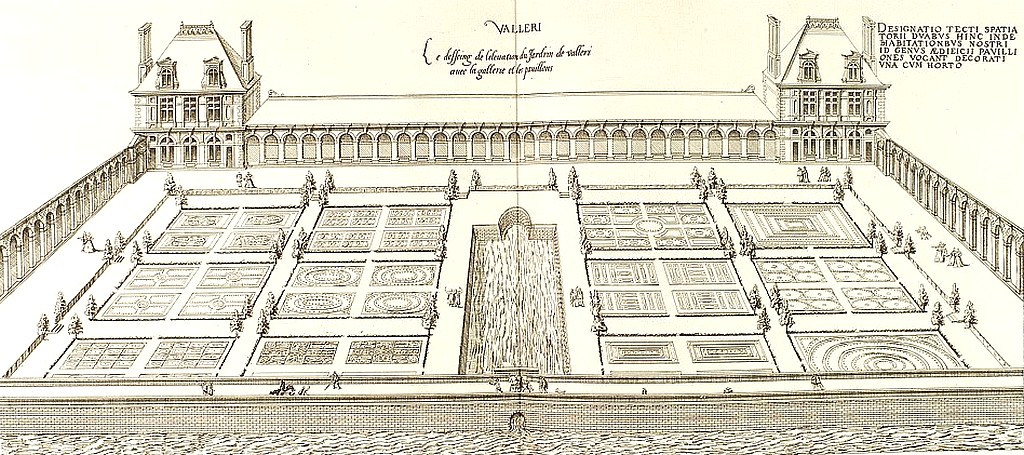 VALLERI
Le desseing de l'eleuation du Jardrin de valleri
auec la gallerie et les pauillons
DESIGNATIO TECTI SPATIA
TORII DVABVS HINC INDE
HABITATIONBVS NOSTRI
ID GENVS ÆDIEICII PAVILLI
ONES VOCANT DECORATI
VNA CVM HORTO